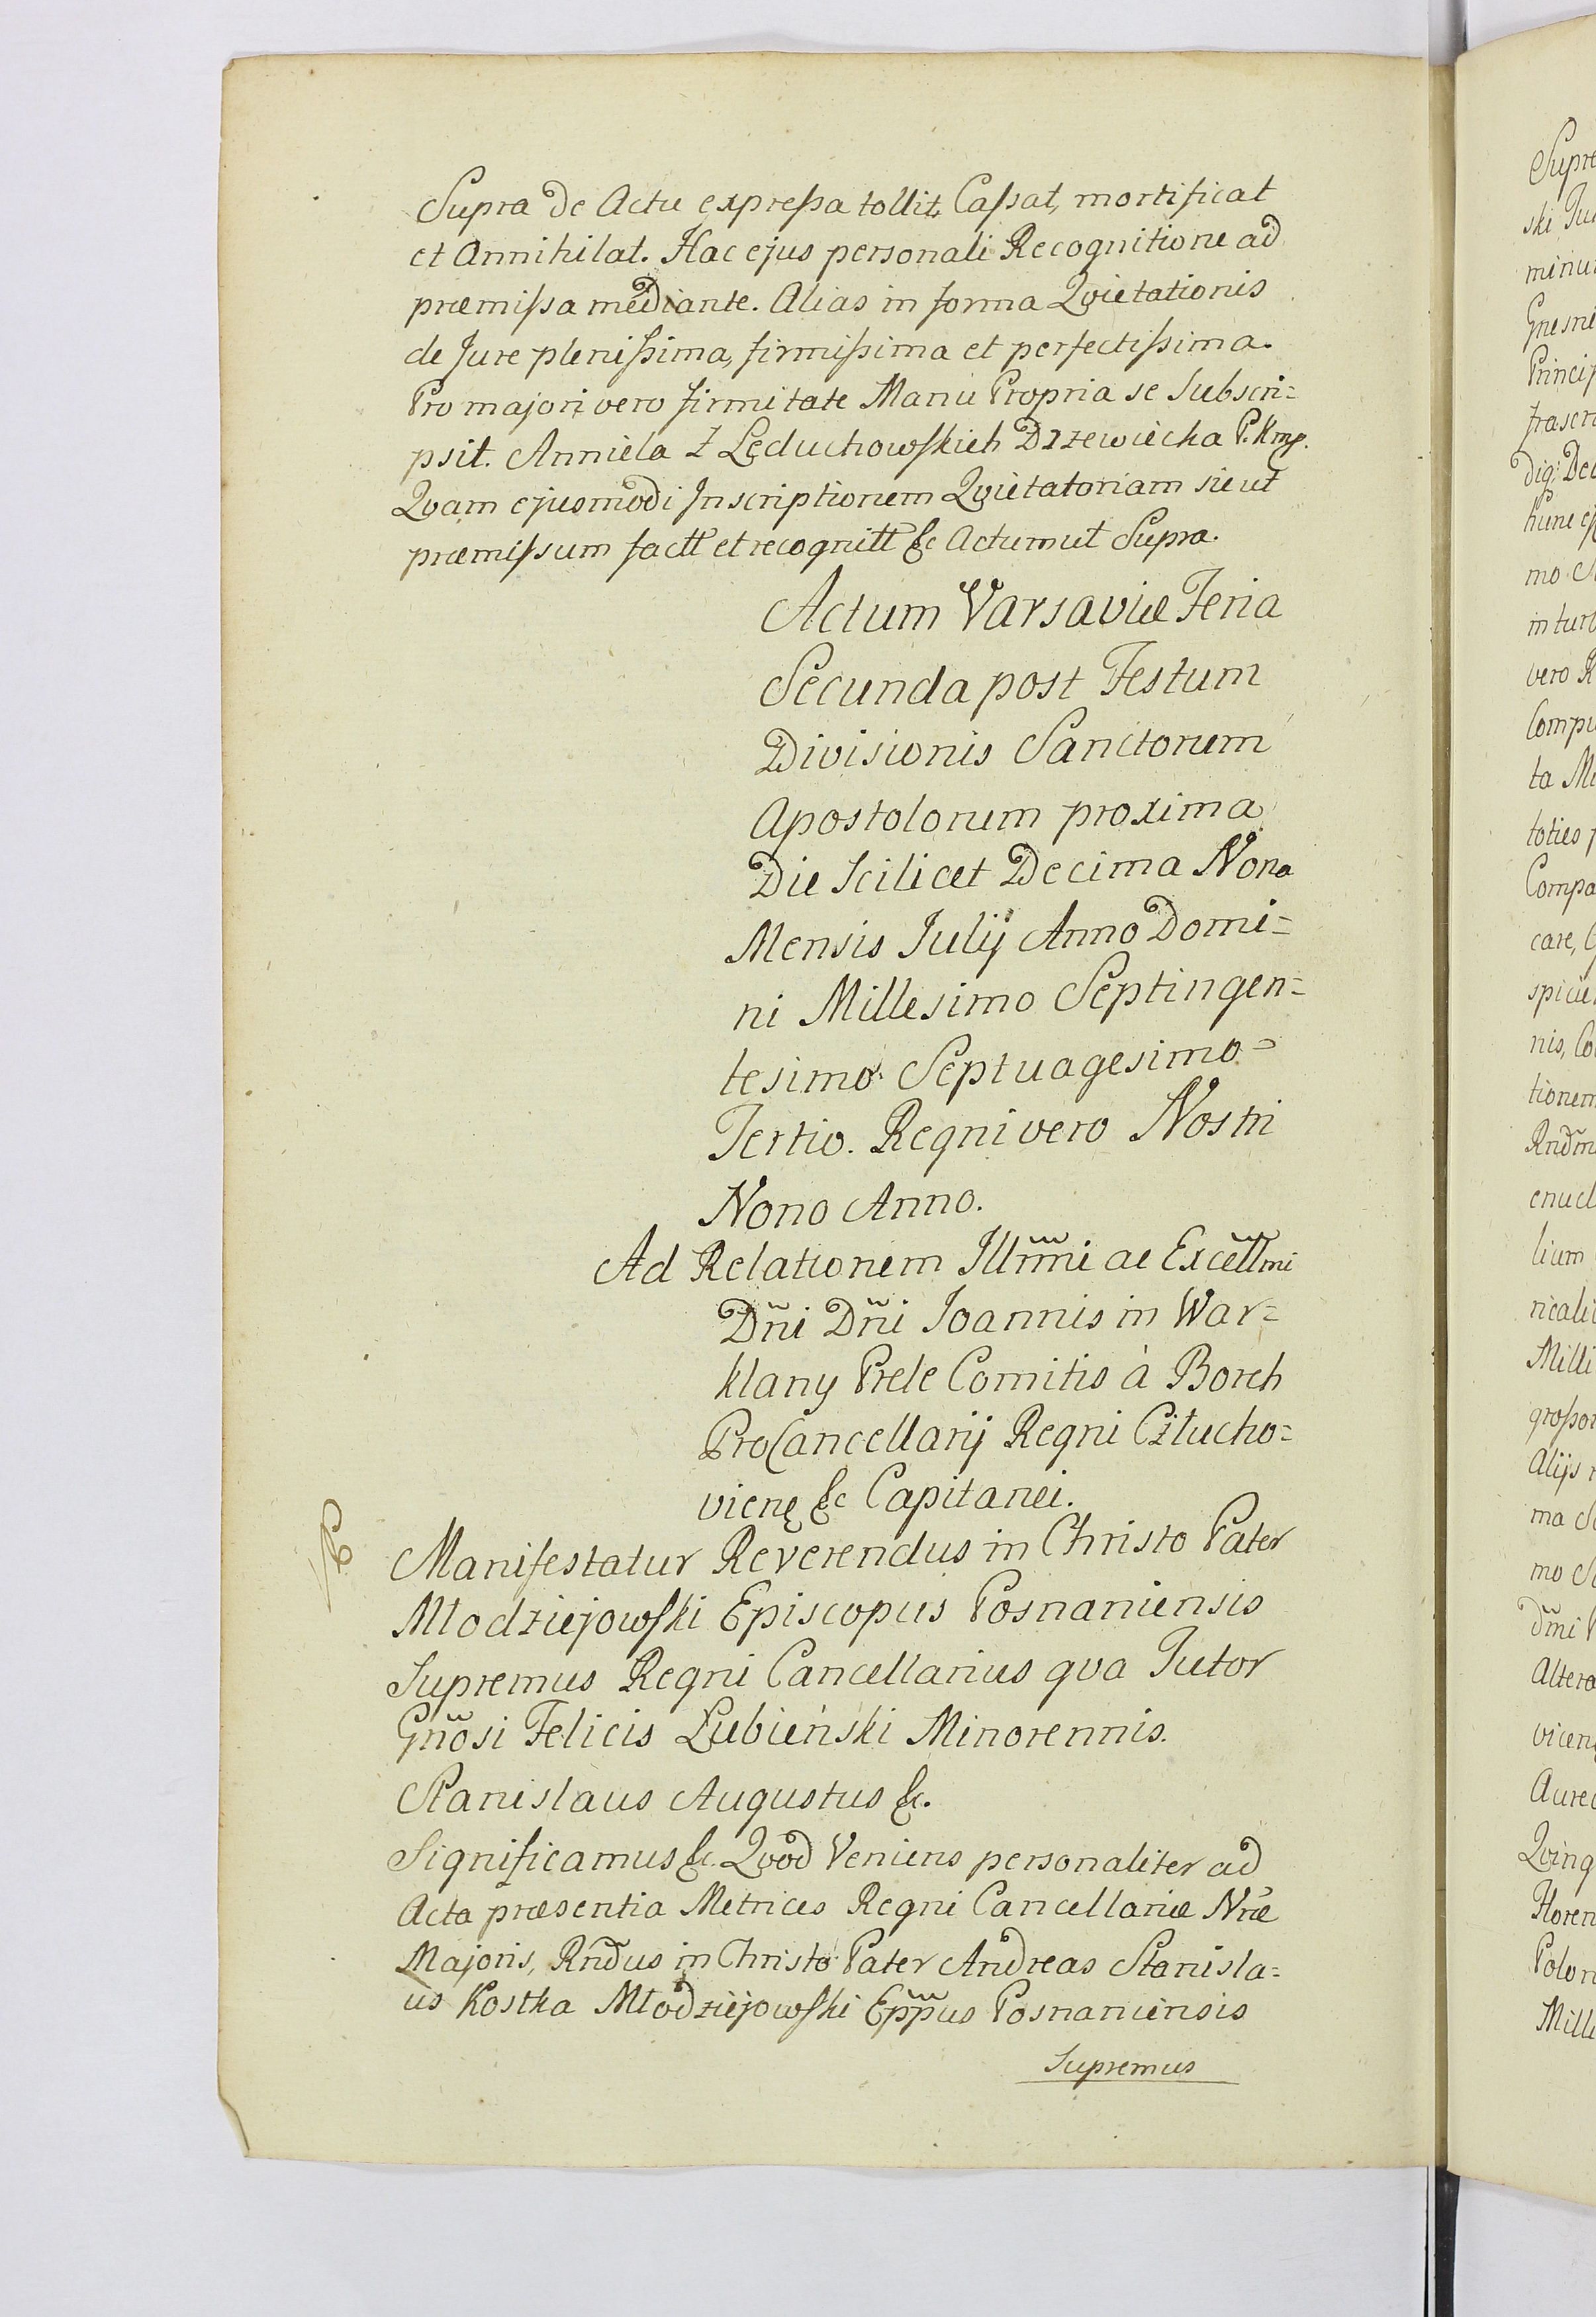 Supra de Actu expreſsa tollit, Caſsat, mortificat
et Annihilat. Hac ejus personali Recognitione ad
præmiſsa mediante. Alias in forma Qvietationis
de Jure pleniſsima, firmiſsima et perfectiſsima.
Pro majori vero firmitate Manu Propria se Subscri=
psit. Anniela z Leduchowſkich Drzewiecka P. Kmp.
Qvam ejusmodi Inscriptionem Qvietatoriam sicut
præmiſsum factt et recognitt &c Actum ut Supra.
Actum Varsaviæ Feria
Secunda post Festum
Divisionis Sanctorum
Apostolorum proxima
Die scilicet Decima Nona
Mensis Julij Anno Domi=
ni Millesimo Septingen=
tesimo Septuagesimo=
Tertio. Regni vero Nostri
Nono Anno.
Ad Relationem Illm̃mi ac Excellm̃mi
Dñi Dñi Joannis in War=
klany Prele Comitis à Borch
ProCancellarij Regni Człucho=
vienę &c Capitanei.
Manifestatur Reverendus in Christo Pater
Młodziejowſki Episcopus Posnaniensis
Supremus Regni Cancellarius qva Tutor
Gñosi Felicis Łubieński Minorennis.
Stanislaus Augustus &c.
Significamus &c. Qvod Veniens personaliter ad
Acta præsentia Metrices Regni Cancellariæ Nr̃æ
Majoris, Rñdus in Christo Pater Andreas Stanisla=
us Kostka Młodziejowſki Epp̃us Posnaniensis
Supremus